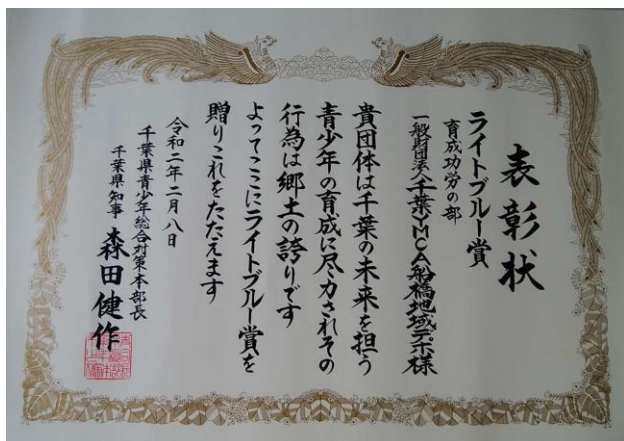 表彰状
ライトブルー賞
育成功労の部
一般財団法人千葉YMCA船橋地域デポ様
貴団体は千葉の未来を担う
青少年の育成に尽力されその
行為は郷土の誇りです
よってここにライトブルー賞を
贈りこれをたたえます
令和二年二月八日
千葉県青少年総合対策本部長
千葉県知事 森田健作